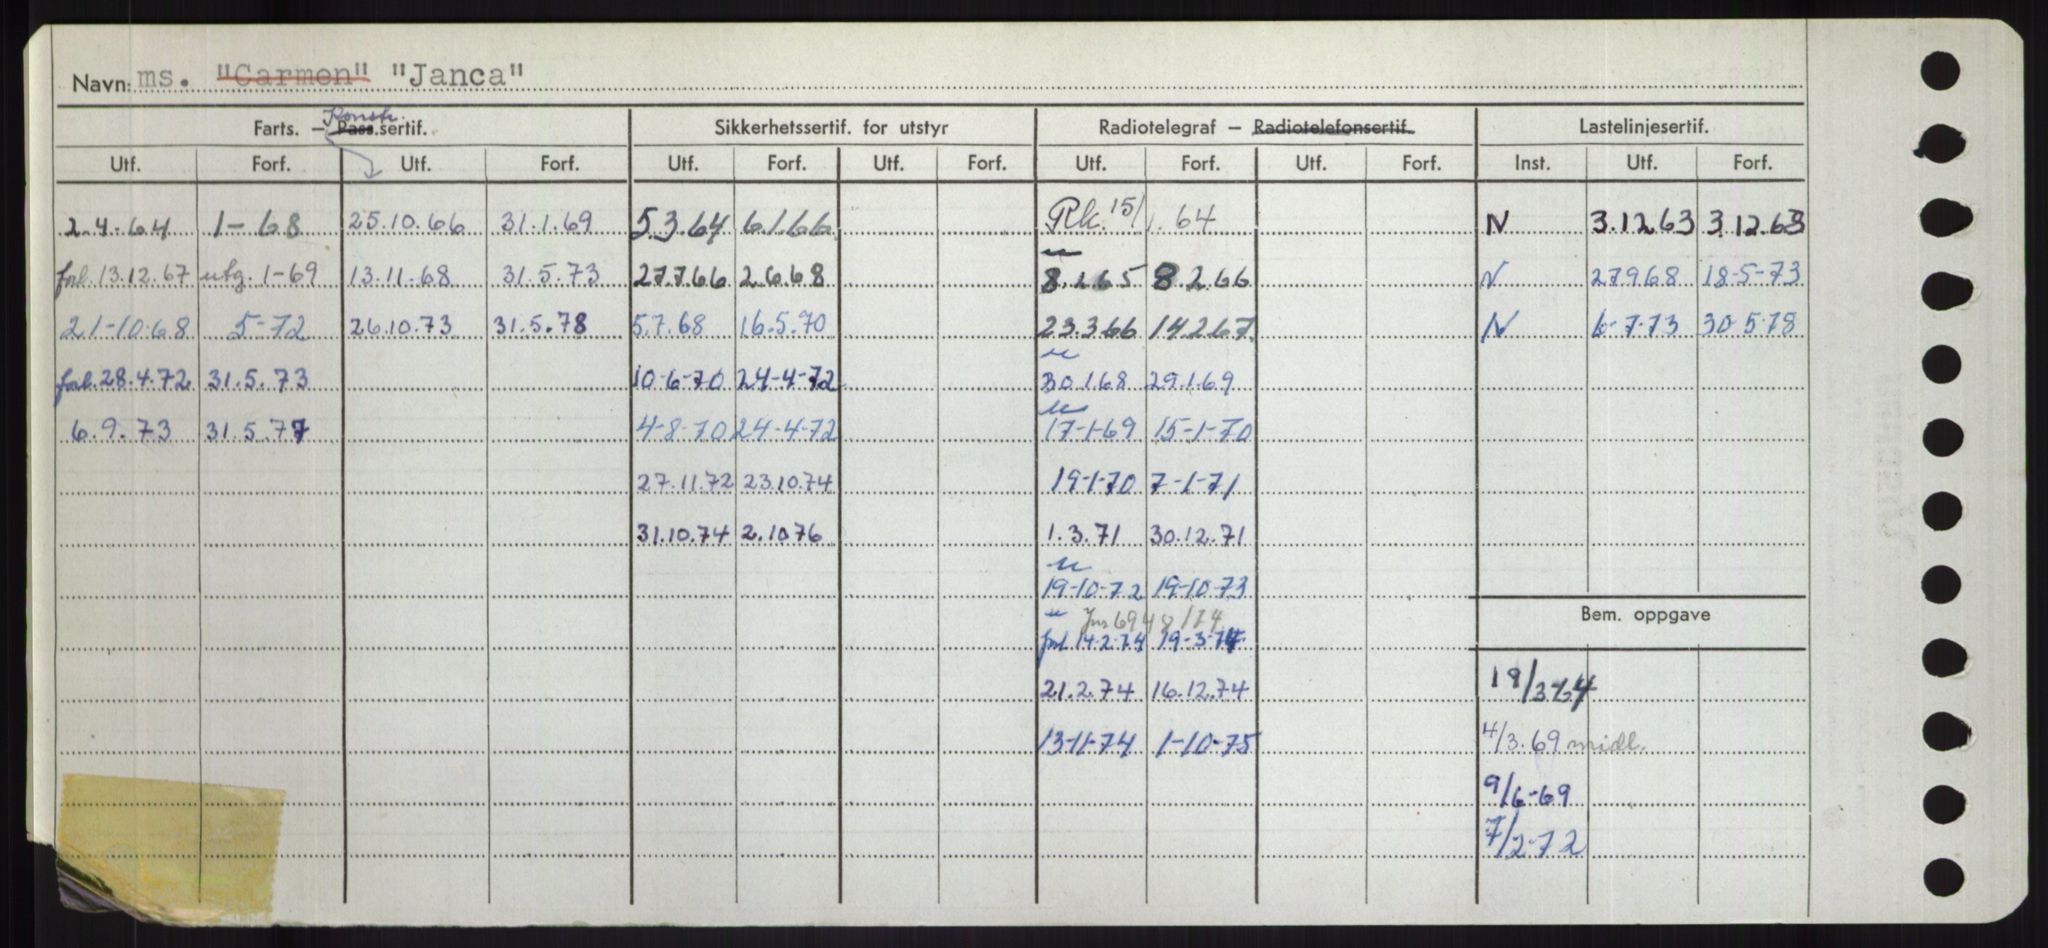 Navn: ms. "Carmen" "Janca"
Konstr.
Farts. – Pass.sertif. Sikkerhetssertif. for utstyr Radiotelegraf – Radiotelefonsertif. Lastelinjesertif.
Utf. Forf. Utf. Forf. Utf. Forf. Utf. Forf. Utf. Forf. Utf. Forf. Inst. Utf. Forf.
2.4.64 1-68 25.10.66 31.1.69 5.3.64 6.1.66 Rk. 15/1.64 N 3.12.63 3.12.68
forl. 13.12.67 utg. 1-69 13.11.68 31.5.73 27.7.66 2.6.68 8.2.65 8.2.66 N 27.9.68 18-5-73
21-10-68 5-72 26.10.73 31.5.78 5.7.68 16.5.70 23.3.66 14.2.67 N 6-7-73 30-5-78
forl. 28.4.72 31.5.73 10-6-70 24-4-72 30.1.68 29.1.69
6.9.73 31.5.77 4-8-70 24-4-72 17-1-69 15-1-70
27.11.72 23.10.74 19-1-70 7-1-71
31.10.74 2.10.76 1.3.71 30.12.71
19-10-72 19-10-73
Bem. oppgave
forl 14-2-74 19-3-74
21.2.74 16.12.74 18/3-64
13-11-74 1-10-75 4/3.69 midl.
9/6-69
7/2-72